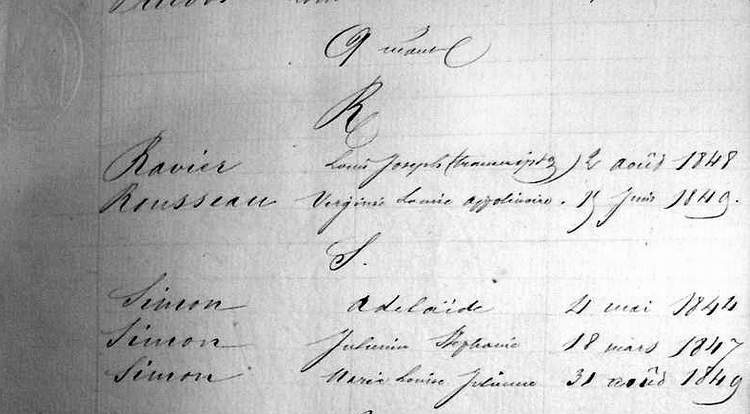 Q néant
R
Ravier Louis Joseph (transcript) 2 août 1848
Rousseau Verginie Louise appolinaire. 15 Juin 1849.
S.
Simon adelaïde 4 mai 1844
Simon Julienne Stéphanie 18 mars 1847
Simon Marie Louise Julienne 31 août 1849